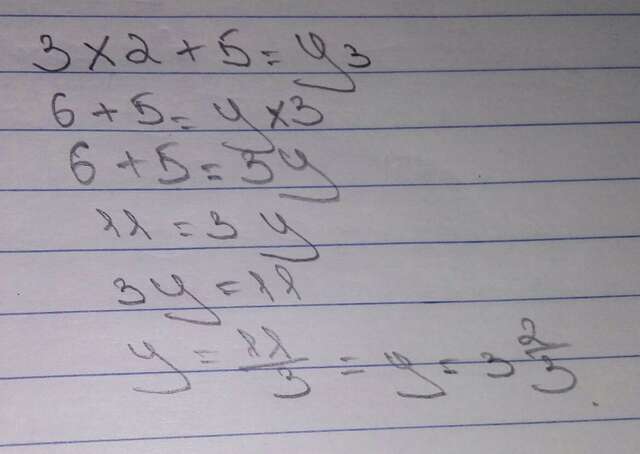 3 × 2 + 5 = y3
6 + 5 = y × 3
6 + 5 = 3y
11 = 3y
3y = 11
y = 11/3 = y = 3 2/3.